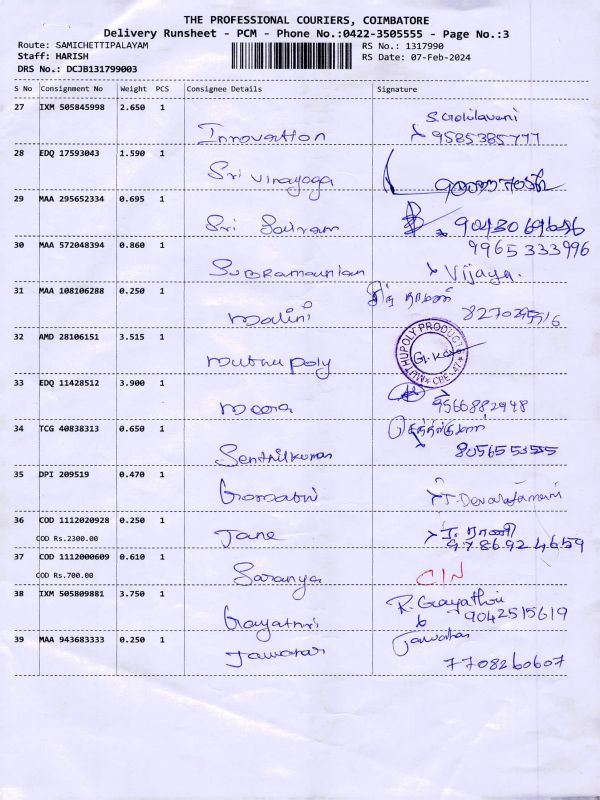 THE PROFESSIONAL COURIERS, COIMBATORE
Delivery Runsheet - PCM - Phone No.:0422-3505555 - Page No.:3
Route: SAMICHETTIPALAYAM RS No.: 1317990
Staff: HARISH RS Date: 07-Feb-2024
DRS No.: DCJB131799003
S No Consignment No Weight PCS Consignee Details Signature
27 IXM 505845998 2.650 1
Innovation 9585385777
28 EDQ 17593043 1.590 1
Sri Vinayaga
29 MAA 295652334 0.695 1
Sri Sairam
30 MAA 572048394 0.860 1 9965333996
Subramanian Vijaya.
31 MAA 108106288 0.250 1
Malini
32 AMD 28106151 3.515 1
Muthupoly
33 EDQ 11428512 3.900 1
9566882948
34 TCG 40838313 0.650 1
Senthilkumar
35 DPI 209519 0.470 1
Gomathi
36 COD 1112020928 0.250 1
Jane
COD Rs.2300.00 9786924659
37 COD 1112000609 0.610 1
COD Rs.700.00 Saranya
38 IXM 505809881 3.750 1 R. Gayathri
Gayathri 9042515619
39 MAA 943683333 0.250 1 Jawahar
Jawahar 7708260607